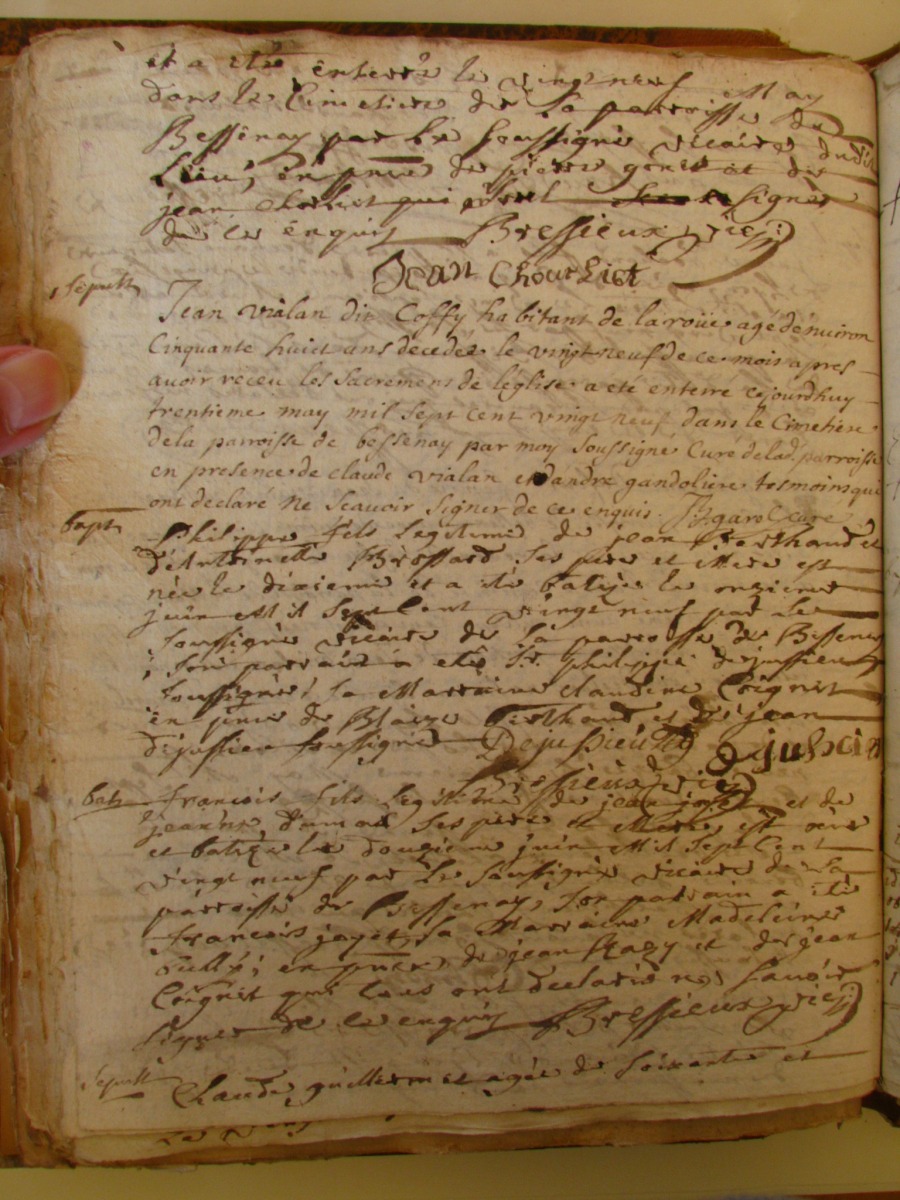 et a eté enterré le vingt neuf May
dans le Cimetiere de la parroisse de
Bessenay par le soussigné vicaire dudit
Lieu, en pnce de pierre et de
jean qui signé
de ce enquis Bressieux vic:
Jean Chourliet
Sepult
Jean vialan dit Coffy habitant de la roüe agé dénuiron
Cinquante huict ans decedée le vingt neuf de ce mois apres
auoir réceu les Sacremens de leglise a eté enterré cejourdhuy
trentieme may mil sept cent vingt neuf dans le Cimetiere
de la parroisse de bessenay par moy soussigné Curé de lad. parroisse
en presence de claude vialan et dandré gandoliere tesmoins qui
ont declaré ne scauoir signer de ce enquis. Curé
bapt
Philippe fils legitime de jean Berthaud et
d'Antoinette Brossard ses pere et Mere est
née le dixieme et a eté batisé le onzieme
juin Mil Sept Cent vingt neuf par le
soussigné vicaire de la parroisse de Bessenay
, son parrain a eté Sr. philippe dejussieu
soussigné, sa Marraine claudine Coignet
en pnce de Blaize Berthaud et de jean
dejussieu soussigné Dejussieu dejussieu
Bressieux vic:
bat
francois fils legitime de jean jayet et de
jeanne ses pere et Mere, est née
et batizé le douzieme juin Mil Sept Cent
vingt neuf par le soussigné vicaire de la
parroisse de Bessenay, son parrain a eté
francois jayet, sa Marraine Madeleine
; en pnce de jean et de jean
Coignet qui tous ont declaré ne savoir
signer de ce enquis Bressieux vic:
Sepult
Claude guillermet agée de soixante et